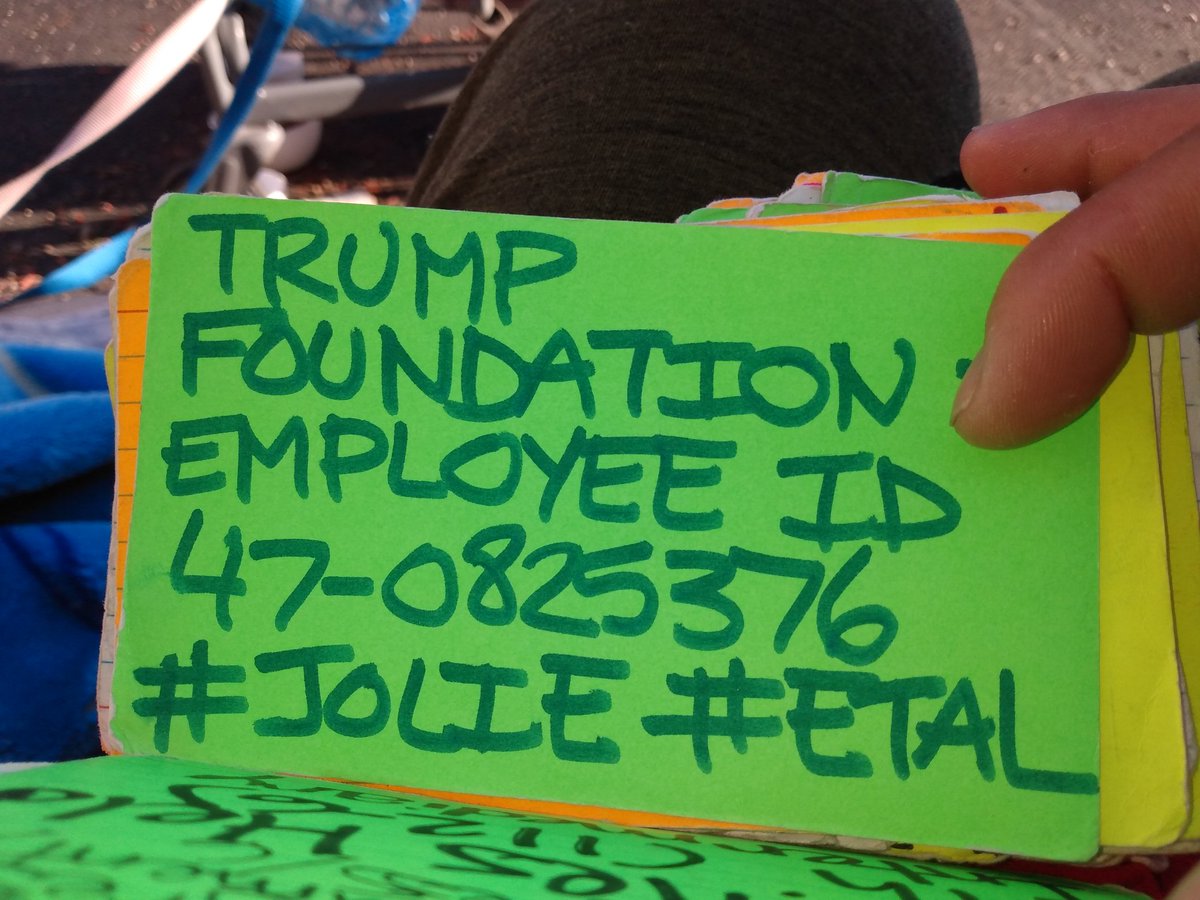 TRUMP
FOUNDATION
EMPLOYEE ID
47-0825376
#JOLIE #ETAL